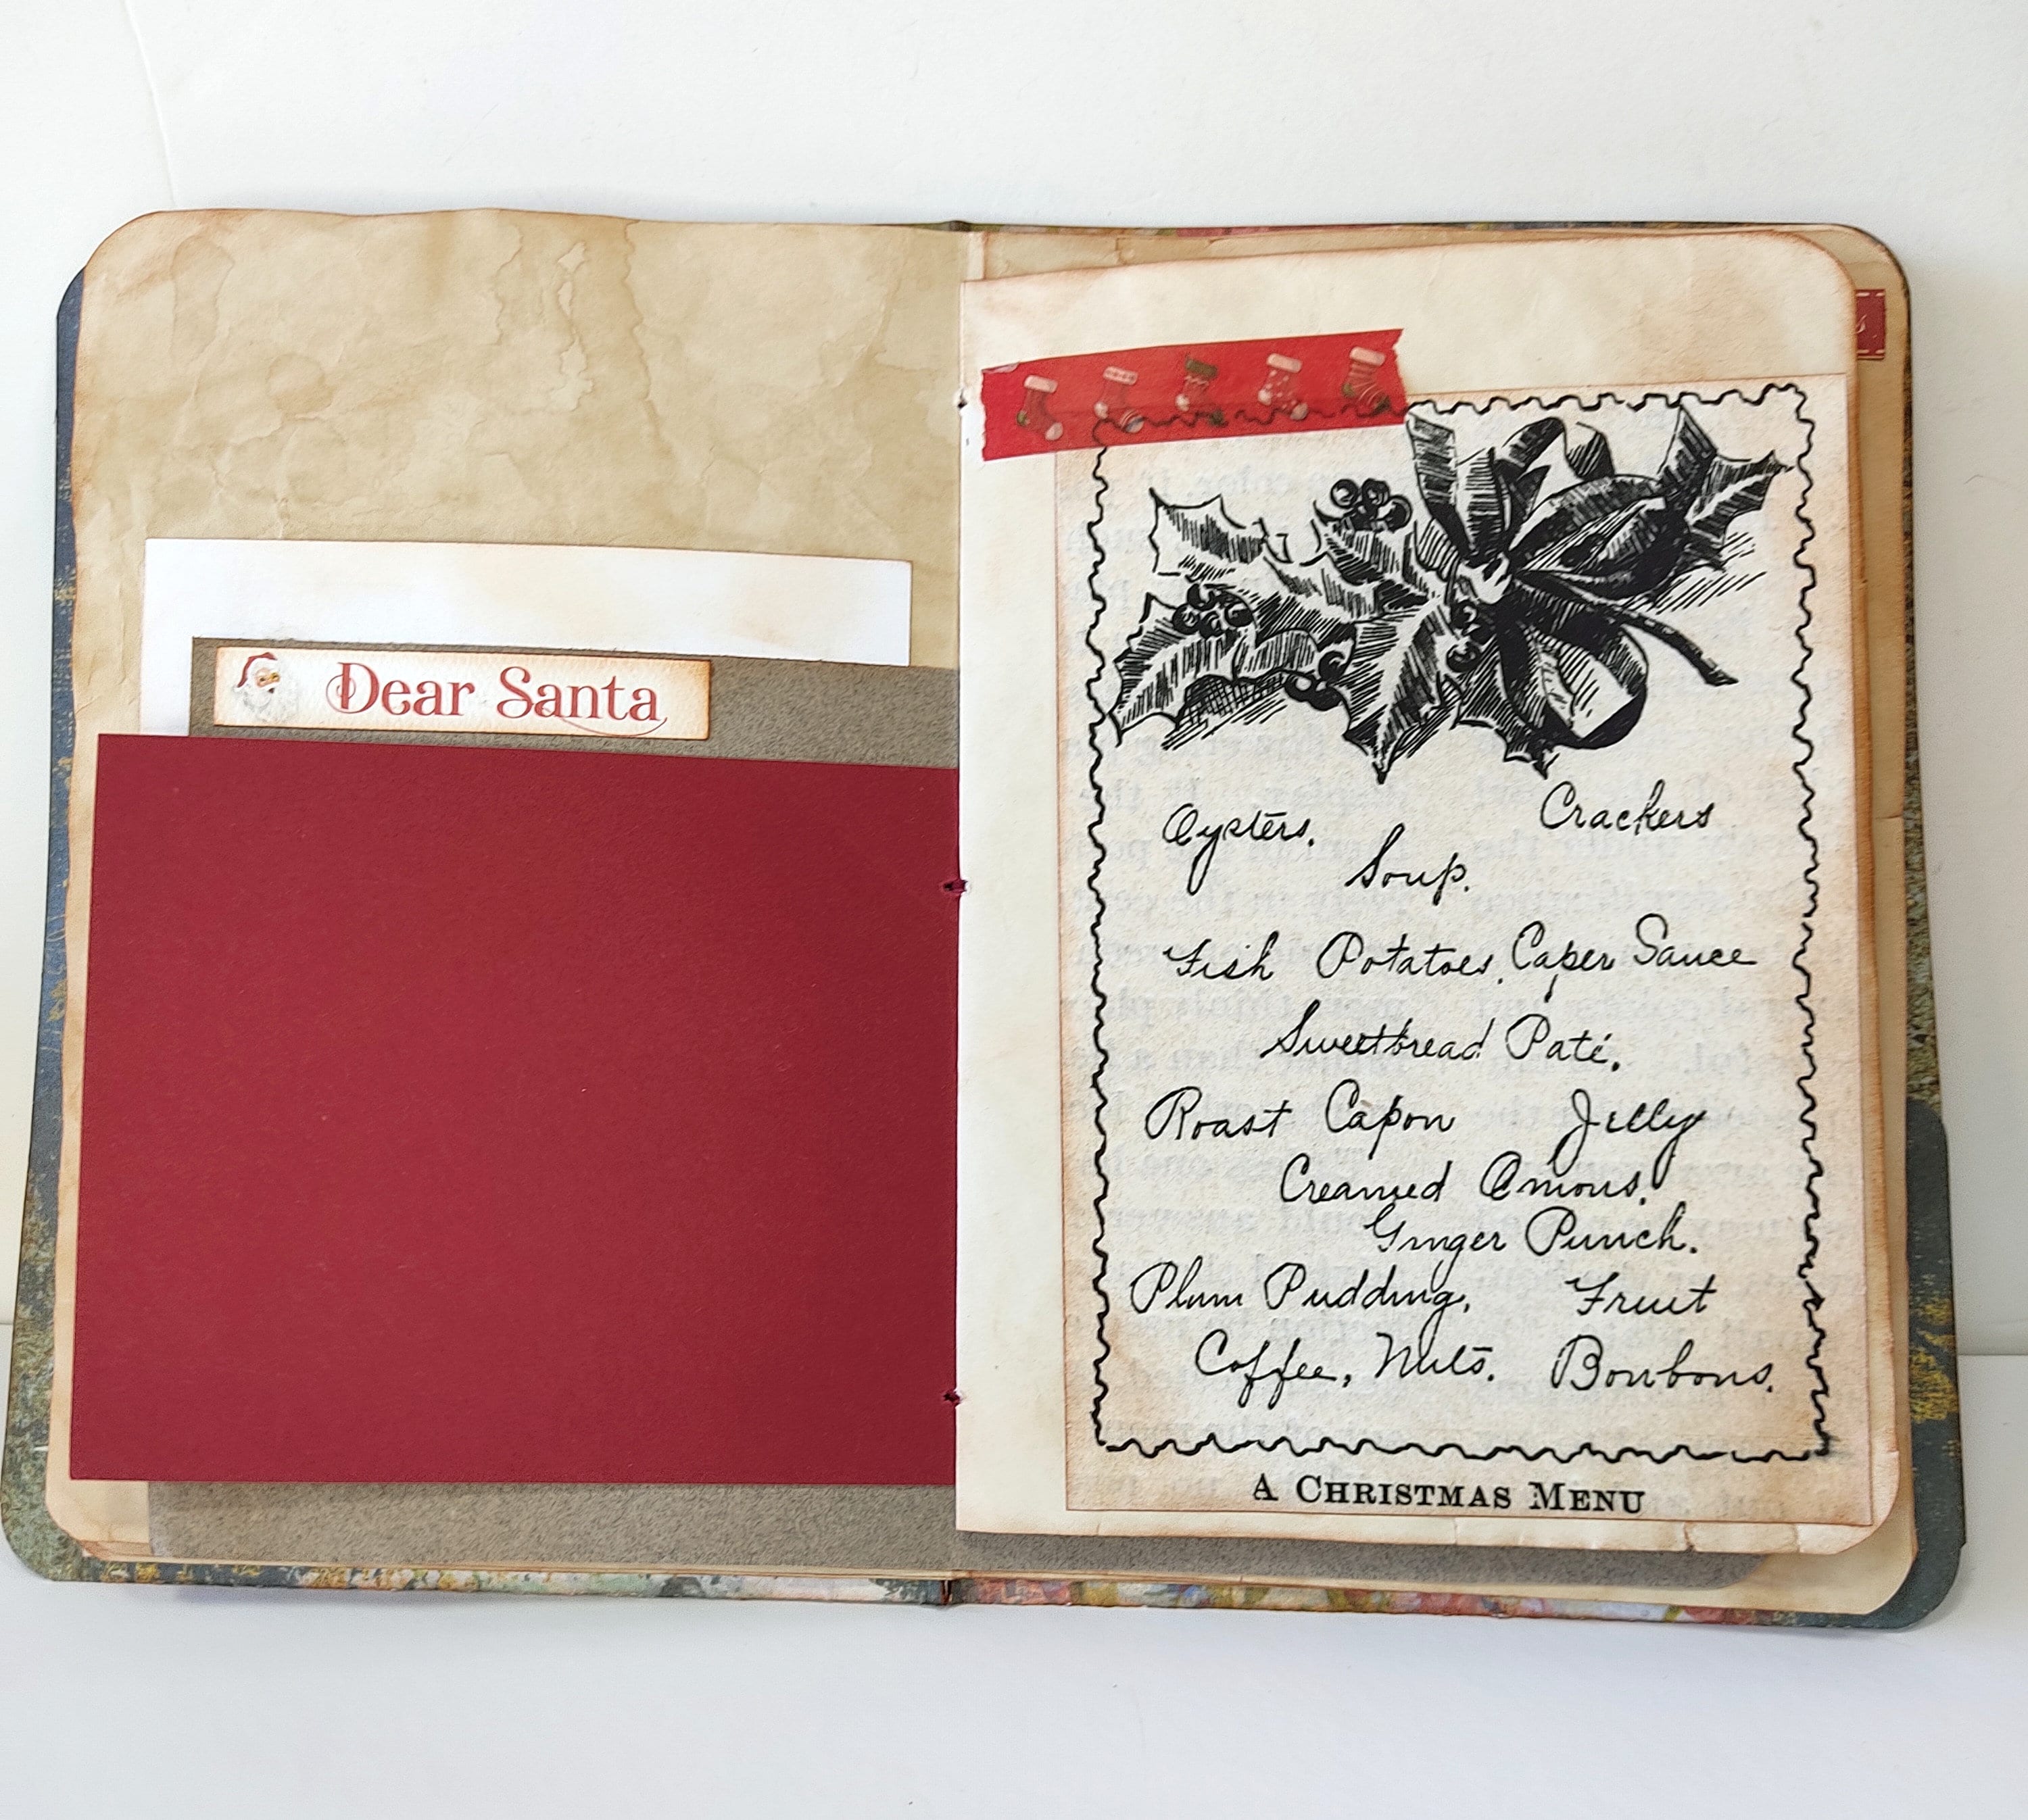 Dear Santa
Oysters. Crackers
Soup.
Fish Potatoes, Caper Sauce
Sweetbread Paté.
Roast Capon Jelly
Creamed Onions.
Ginger Punch.
Plum Pudding, Fruit
Coffee, Nuts. Bonbons.
A CHRISTMAS MENU